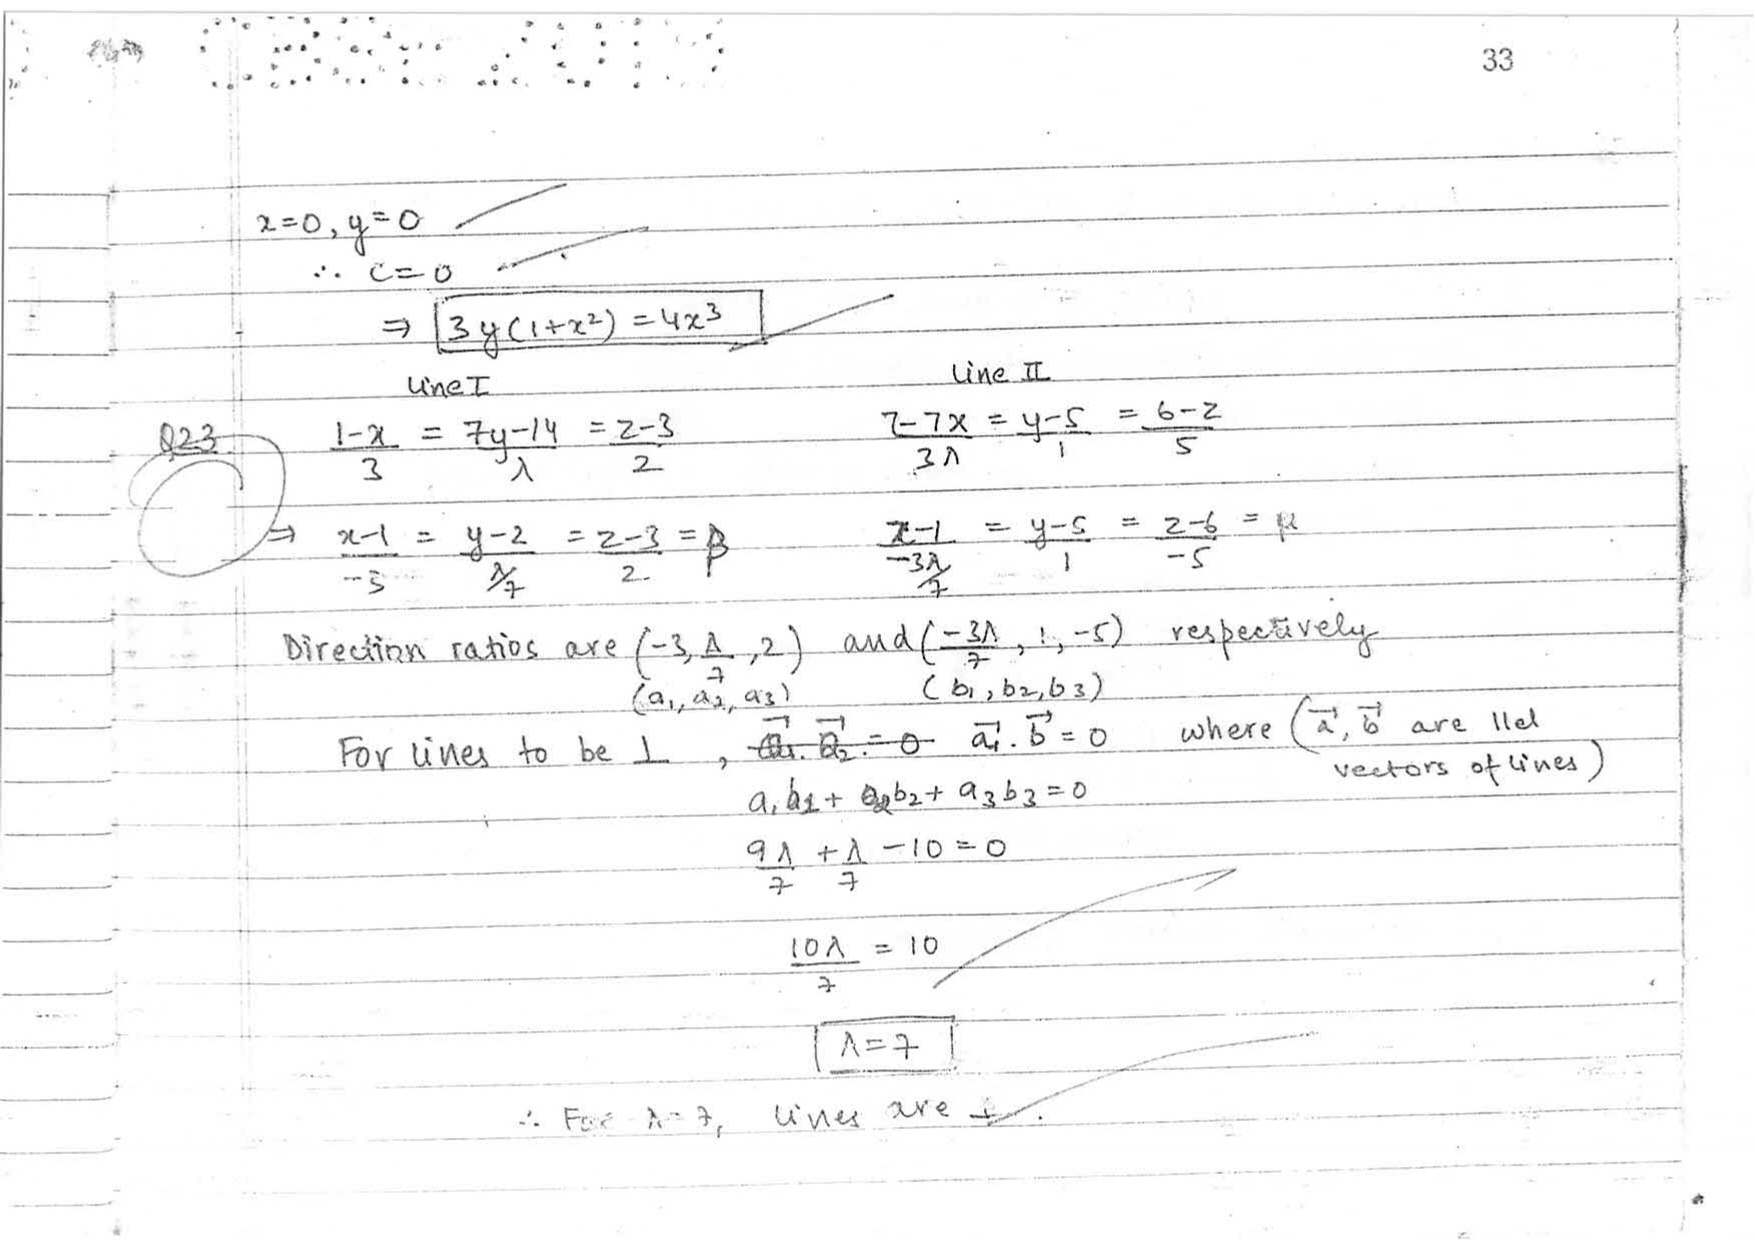 33
x=0, y=0
∴ C=0
⇒ 3y(1+x²) = 4x³
Line I Line II
Q23 (1-x)/3 = (7y-14)/λ = (z-3)/2 (7-7x)/3λ = (y-5)/1 = (6-z)/5
⇒ (x-1)/-3 = (y-2)/(λ/7) = (z-3)/2 = β (x-1)/(-3λ/7) = (y-5)/1 = (z-6)/-5 = μ
Direction ratios are (-3, λ/7, 2) and (-3λ/7, 1, -5) respectively
(a₁, a₂, a₃) (b₁, b₂, b₃)
For lines to be ⊥, a⃗. b⃗ = 0 where (a⃗, b⃗ are llel
vectors of lines)
a₁b₁ + a₂b₂ + a₃b₃ = 0
9λ/7 + λ/7 - 10 = 0
10λ/7 = 10
λ = 7
∴ For λ = 7, lines are ⊥.